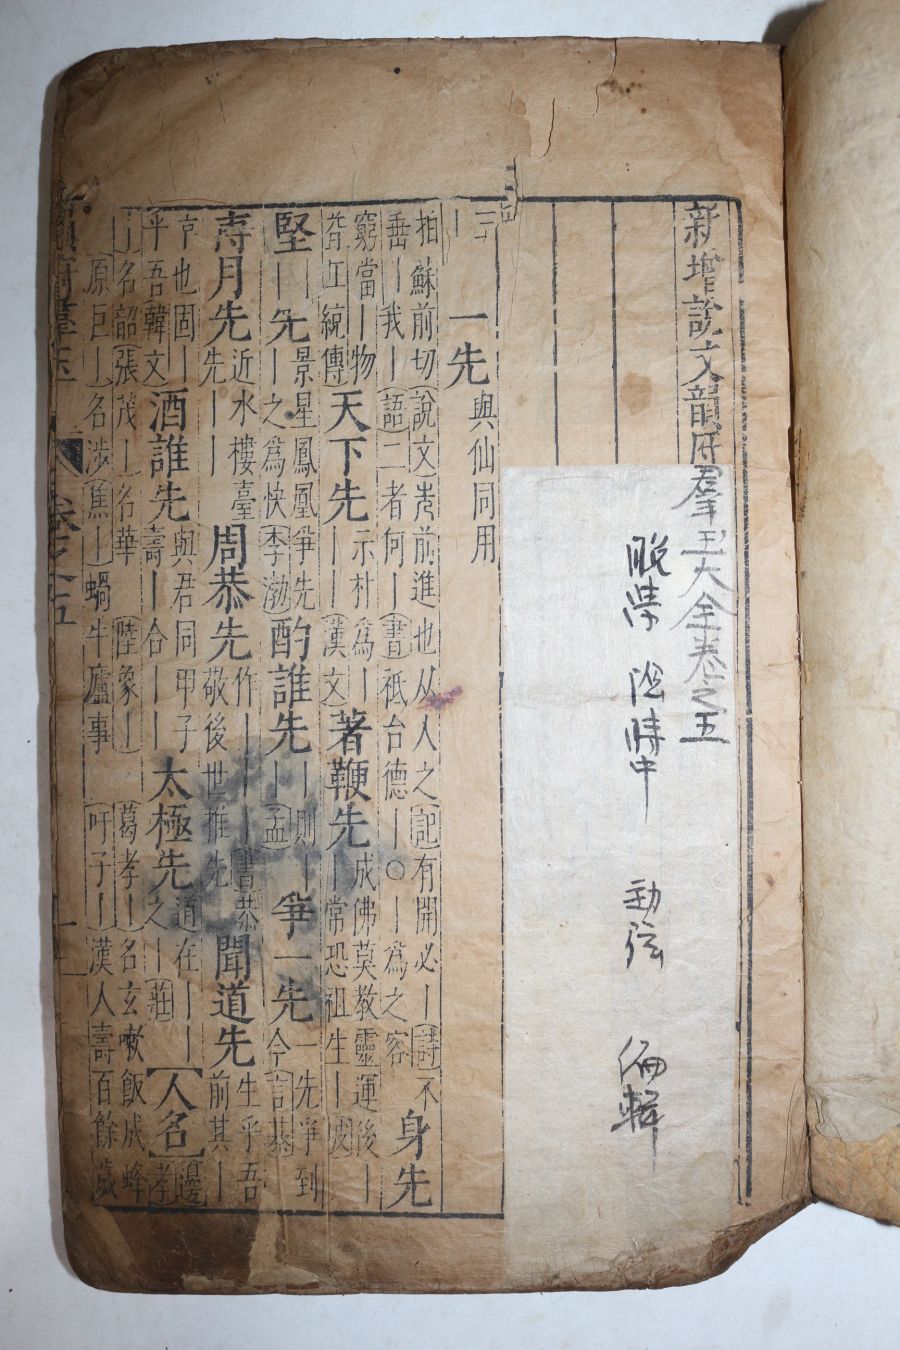 新增說文韻府羣玉大全卷之五
晚學 陰時中 勁弦 編輯
一先 與仙同用
先 拍 蘇前切(說文)先前進也从人之(記)有開必丨(詩)不
丨我丨(語)二者何丨(書)祇台德丨〇丨爲之容 身先
窮當丨物 示朴爲丨 成佛莫教靈運後丨
傳 天下先丨丨(漢文) 著鞭先丨常恐祖生丨
堅丨先丨 景星鳳凰爭先 之爲快(李渤) 酌誰先丨丨則丨(孟) 爭一先 今言 一先爭到
壽月先 近水樓臺先 周恭先 作丨丨(書)恭 敬後世推先 聞道先 生乎吾前其丨
也固丨 平吾(韓文) 酒誰先 與君同甲子壽丨合丨丨 太極先 道在丨丨之丨(莊)【人名】邊孝
丨名韶(張)茂丨名華(陸)象丨(葛)孝丨名玄嗽飯成蜂
原巨丨名涉(焦)丨蝸牛廬事 吁子丨漢人壽百餘歲
卷之五